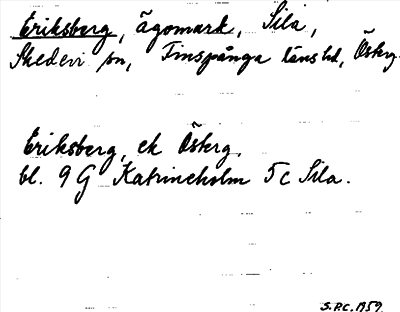 Eriksberg, ägomark, Sila,
Skedevi sn, Finspånga länshd, Österg.
Eriksberg, ek Österg.
bl. 9 G Katrineholm 5 c Sila.
S.P.C. 1959